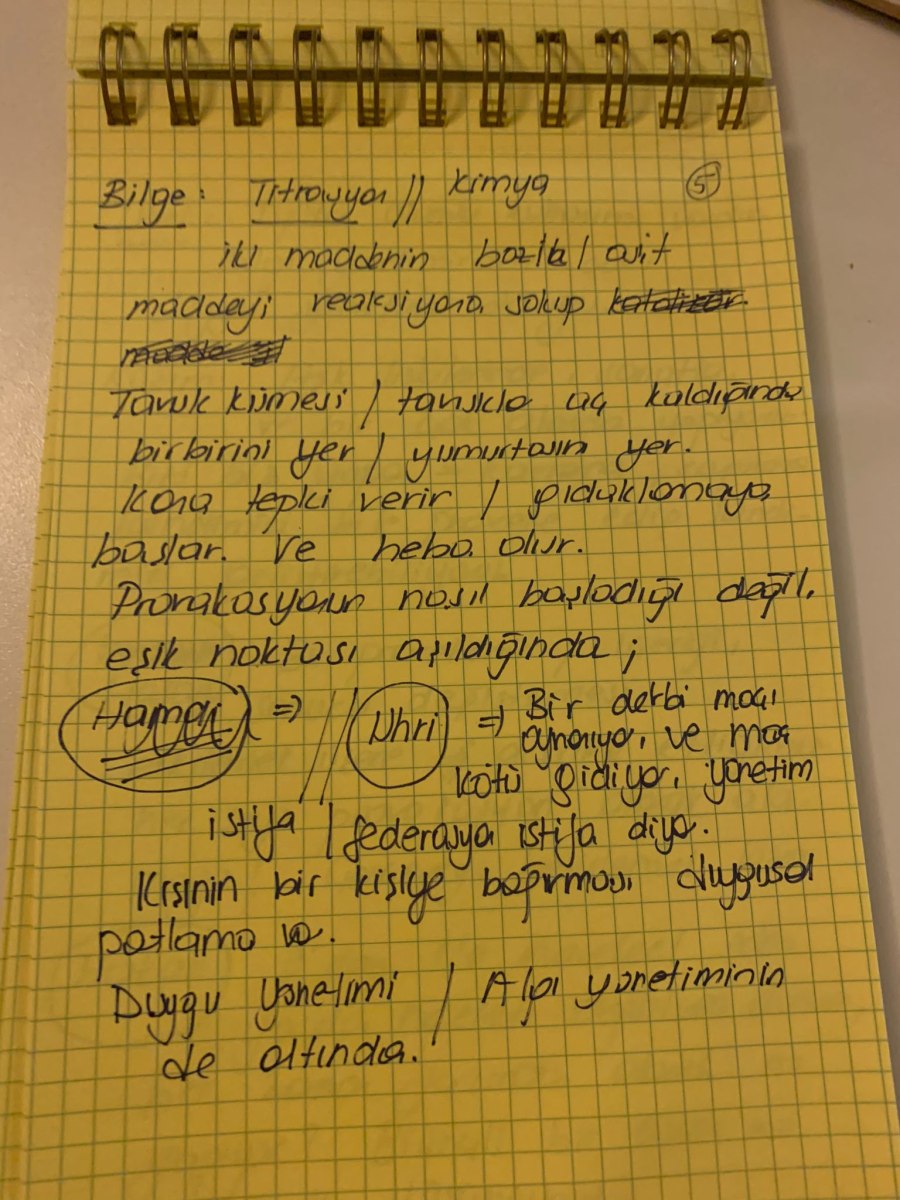 Bilge: Titrasyon // Kimya ⑤
iki maddenin bazla / asit
maddeyi reaksiyona sokup
Tavuk kümesi / tavuklo aç kaldığında
birbirini yer / yumurtasın yer.
Kana tepki verir / gıdaklamaya
başlar. Ve heba olur.
Provakasyonun nasıl başladığı değil,
eşik noktası aşıldığında ;
⇒ // Nhri ⇒ Bir derbi maçı
oynanıyo, ve maç
kötü gidiyor, yönetim
istifa / federasyo istifa diyo.
Kişinin bir kişiye bağırması duygusal
patlama
Duygu yönetimi / Algı yönetiminin
de altında.